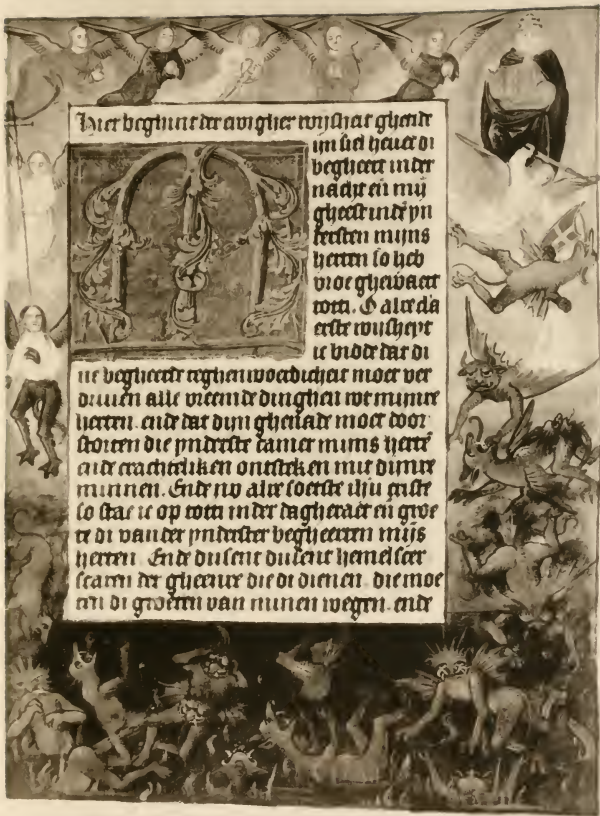 Hier beghint der ewigher wijsheit ghetide
M ijn siel heuet di
begheert inder
nacht eñ mijn
gheest in dē yn
dersten mijns
herten so heb
vroe ghewaect
totti. O alre cla
erste wijsheyt
ic bidde dat di
ne begheerde teghenwoerdicheit moet ver
driuen alle vreemde dinghen wt minre
herten. ende dat dijn ghenade moet door
storten die ynderste camer mijns hertē
ende crachteliken ontsteken mit dinre
minnen. Ende nv alre soetste ihū criste
so stae ic op totti inder dagheraet en groe
te di van der ynderster begheerten mijs
herten. Ende dusent dusent hemelscer
scaren der gheenre die di dienen. die moe
ten di groeten van minen wegen. ende